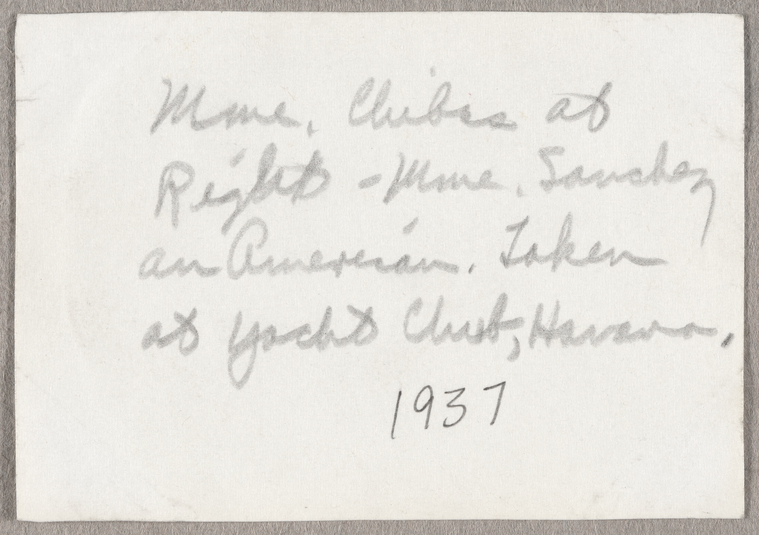 Mme. Chibas at
Right - Mme. Sanchez
an American. Taken
at Yacht Club, Havana.
1937